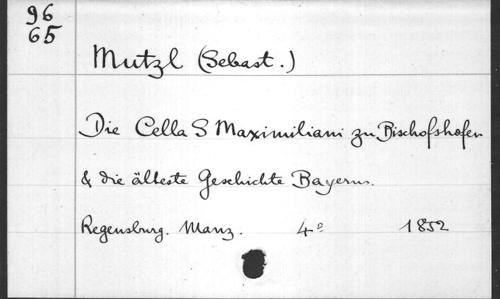 96
65
Mutzl (Sebast.)
Die Cella S Maximiliani zu Bischofshofen
& die älteste Geschichte Bayerns.
Regensburg. Manz. 4° 1852